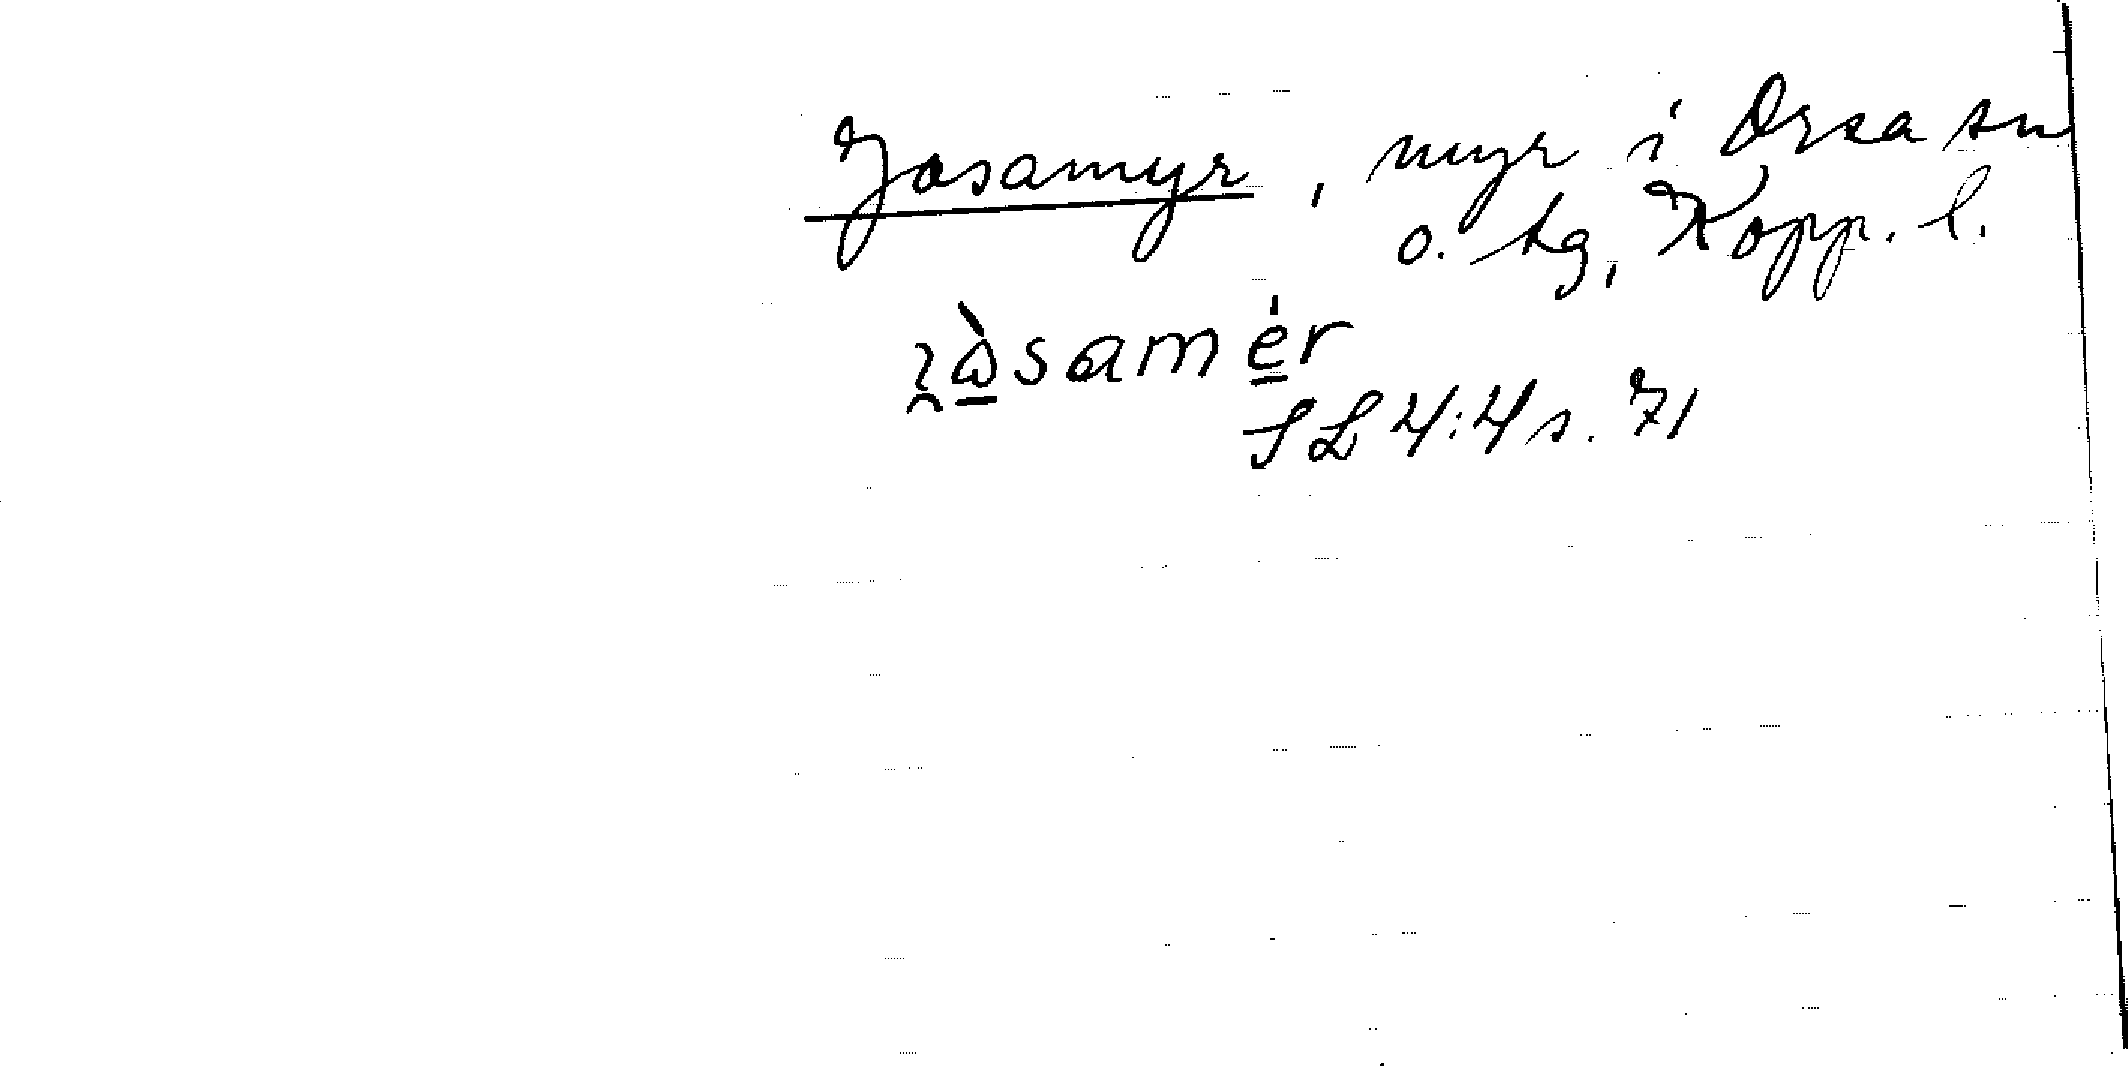 Josamyr, myr i Orsa sn
o. tg, Kopp. l.
samer
SL 4:4 s. 71